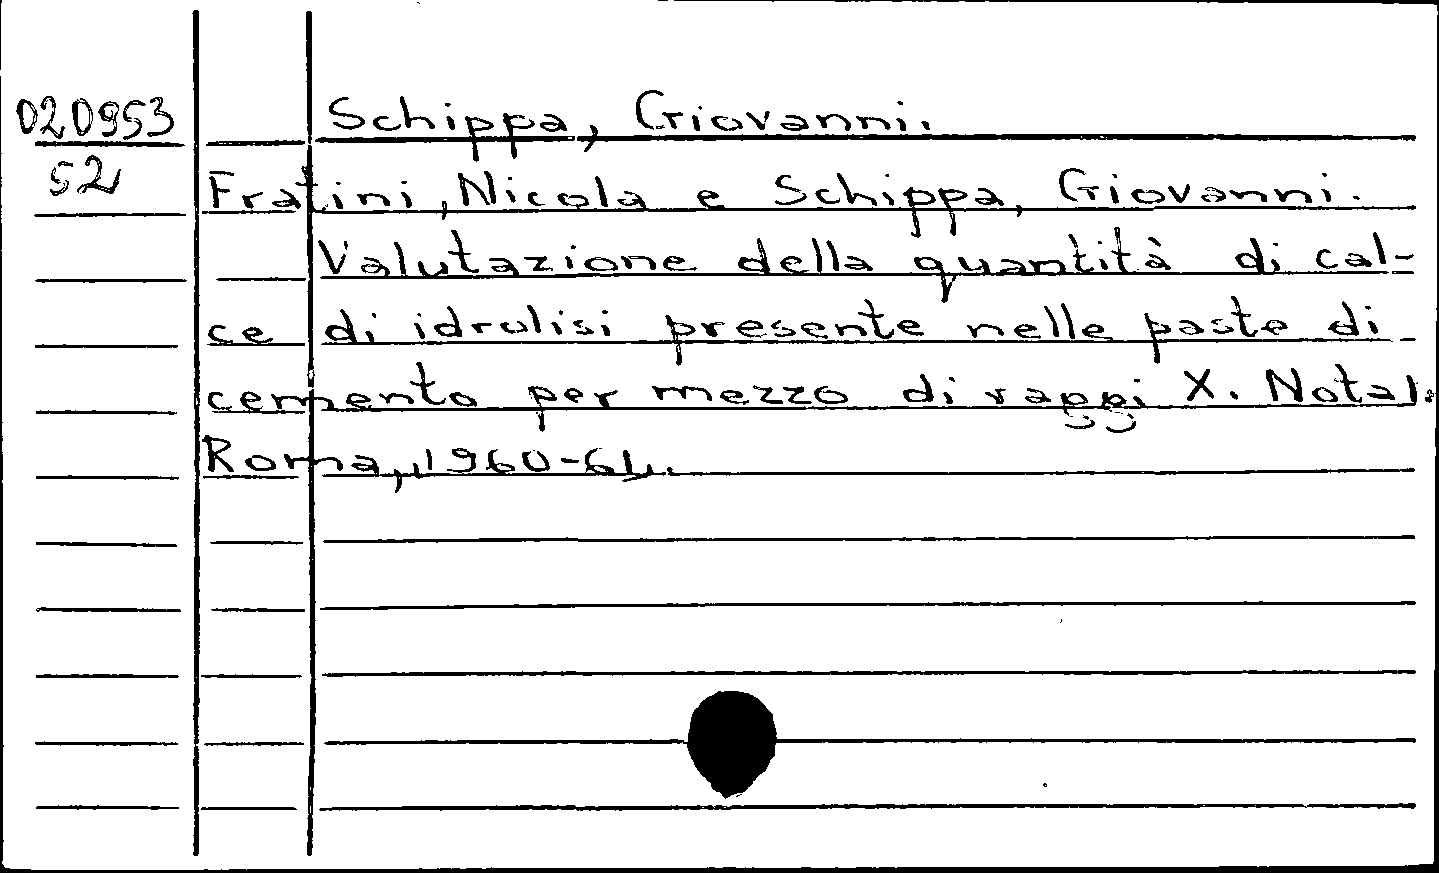 020953 Schippa, Giovanni.
52 Fratini, Nicola e Schippa, Giovanni.
Valutazione della quantità di cal-
ce di idrolisi presente nelle paste di
cemento per mezzo di raggi X. Nota I.
Roma, 1960-64.